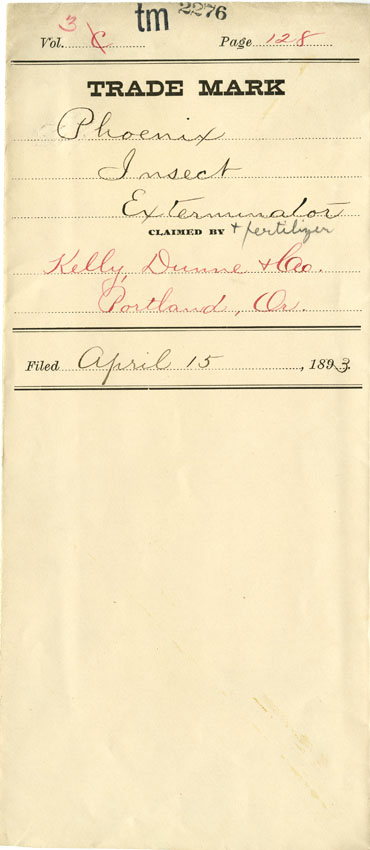 tm 2276
Vol. 3 C Page 128
TRADE MARK
Phoenix
Insect
Exterminator
CLAIMED BY + fertilizer
Kelly, Dunne & Co.
Portland, Or.
Filed April 15, 1893.